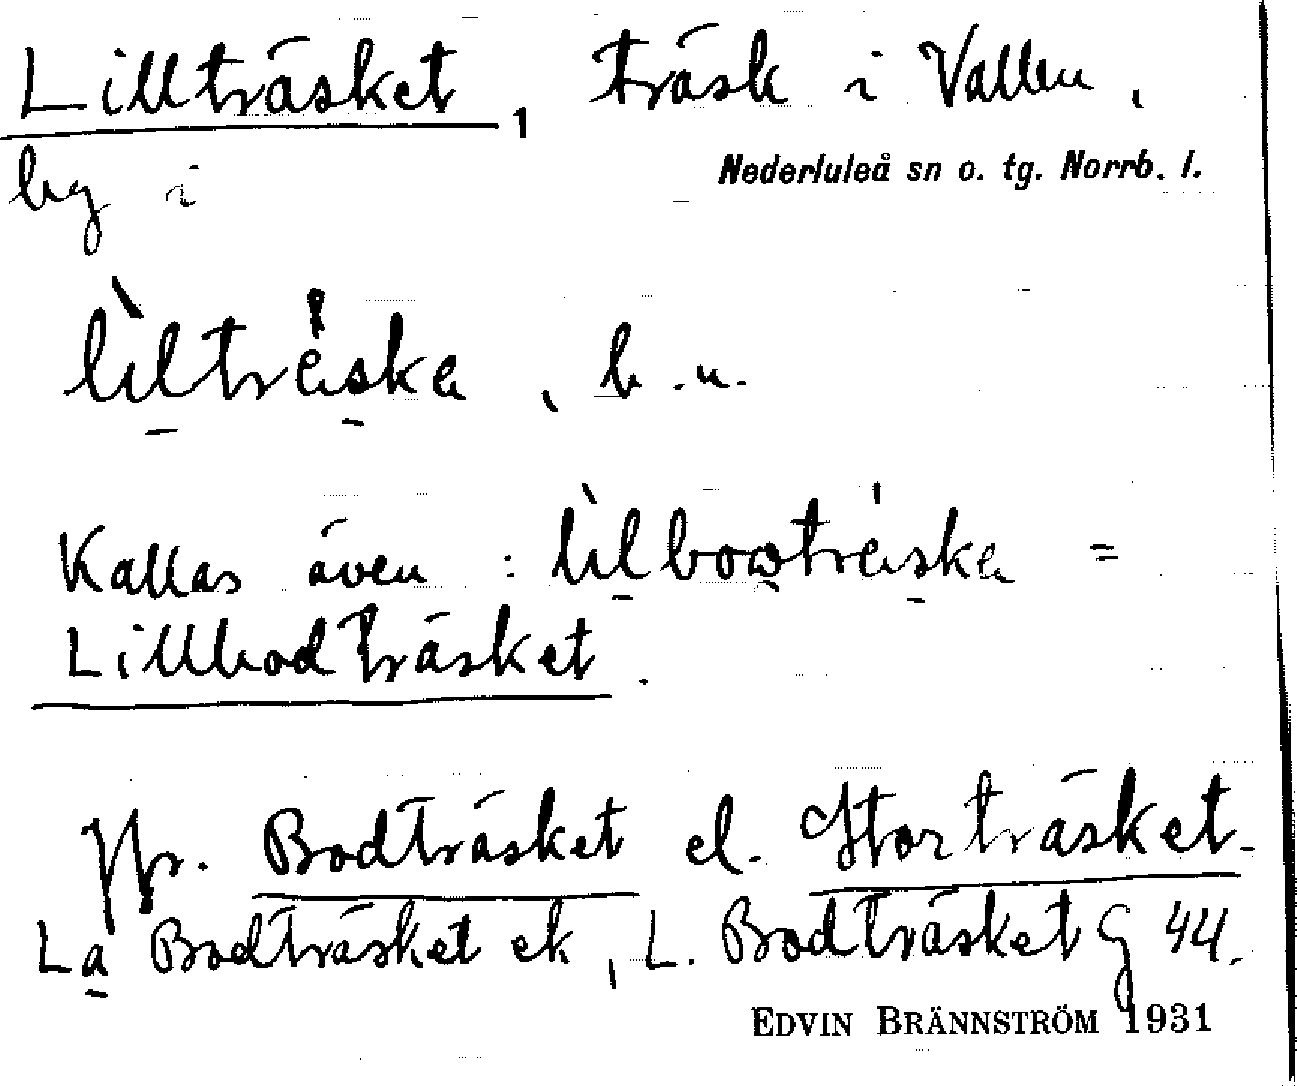 Lillträsket, träsk i Vallen,
by i Nederluleå sn o. tg. Norrb. l.
lìltrèska, b.u.
Kallas även : lìlbowtrèska =
Lillbodträsket.
Jfr. Bodträsket el. Storträsket.
La Bodträsket ek, L. Bodträsket G 44.
EDVIN BRÄNNSTRÖM 1931